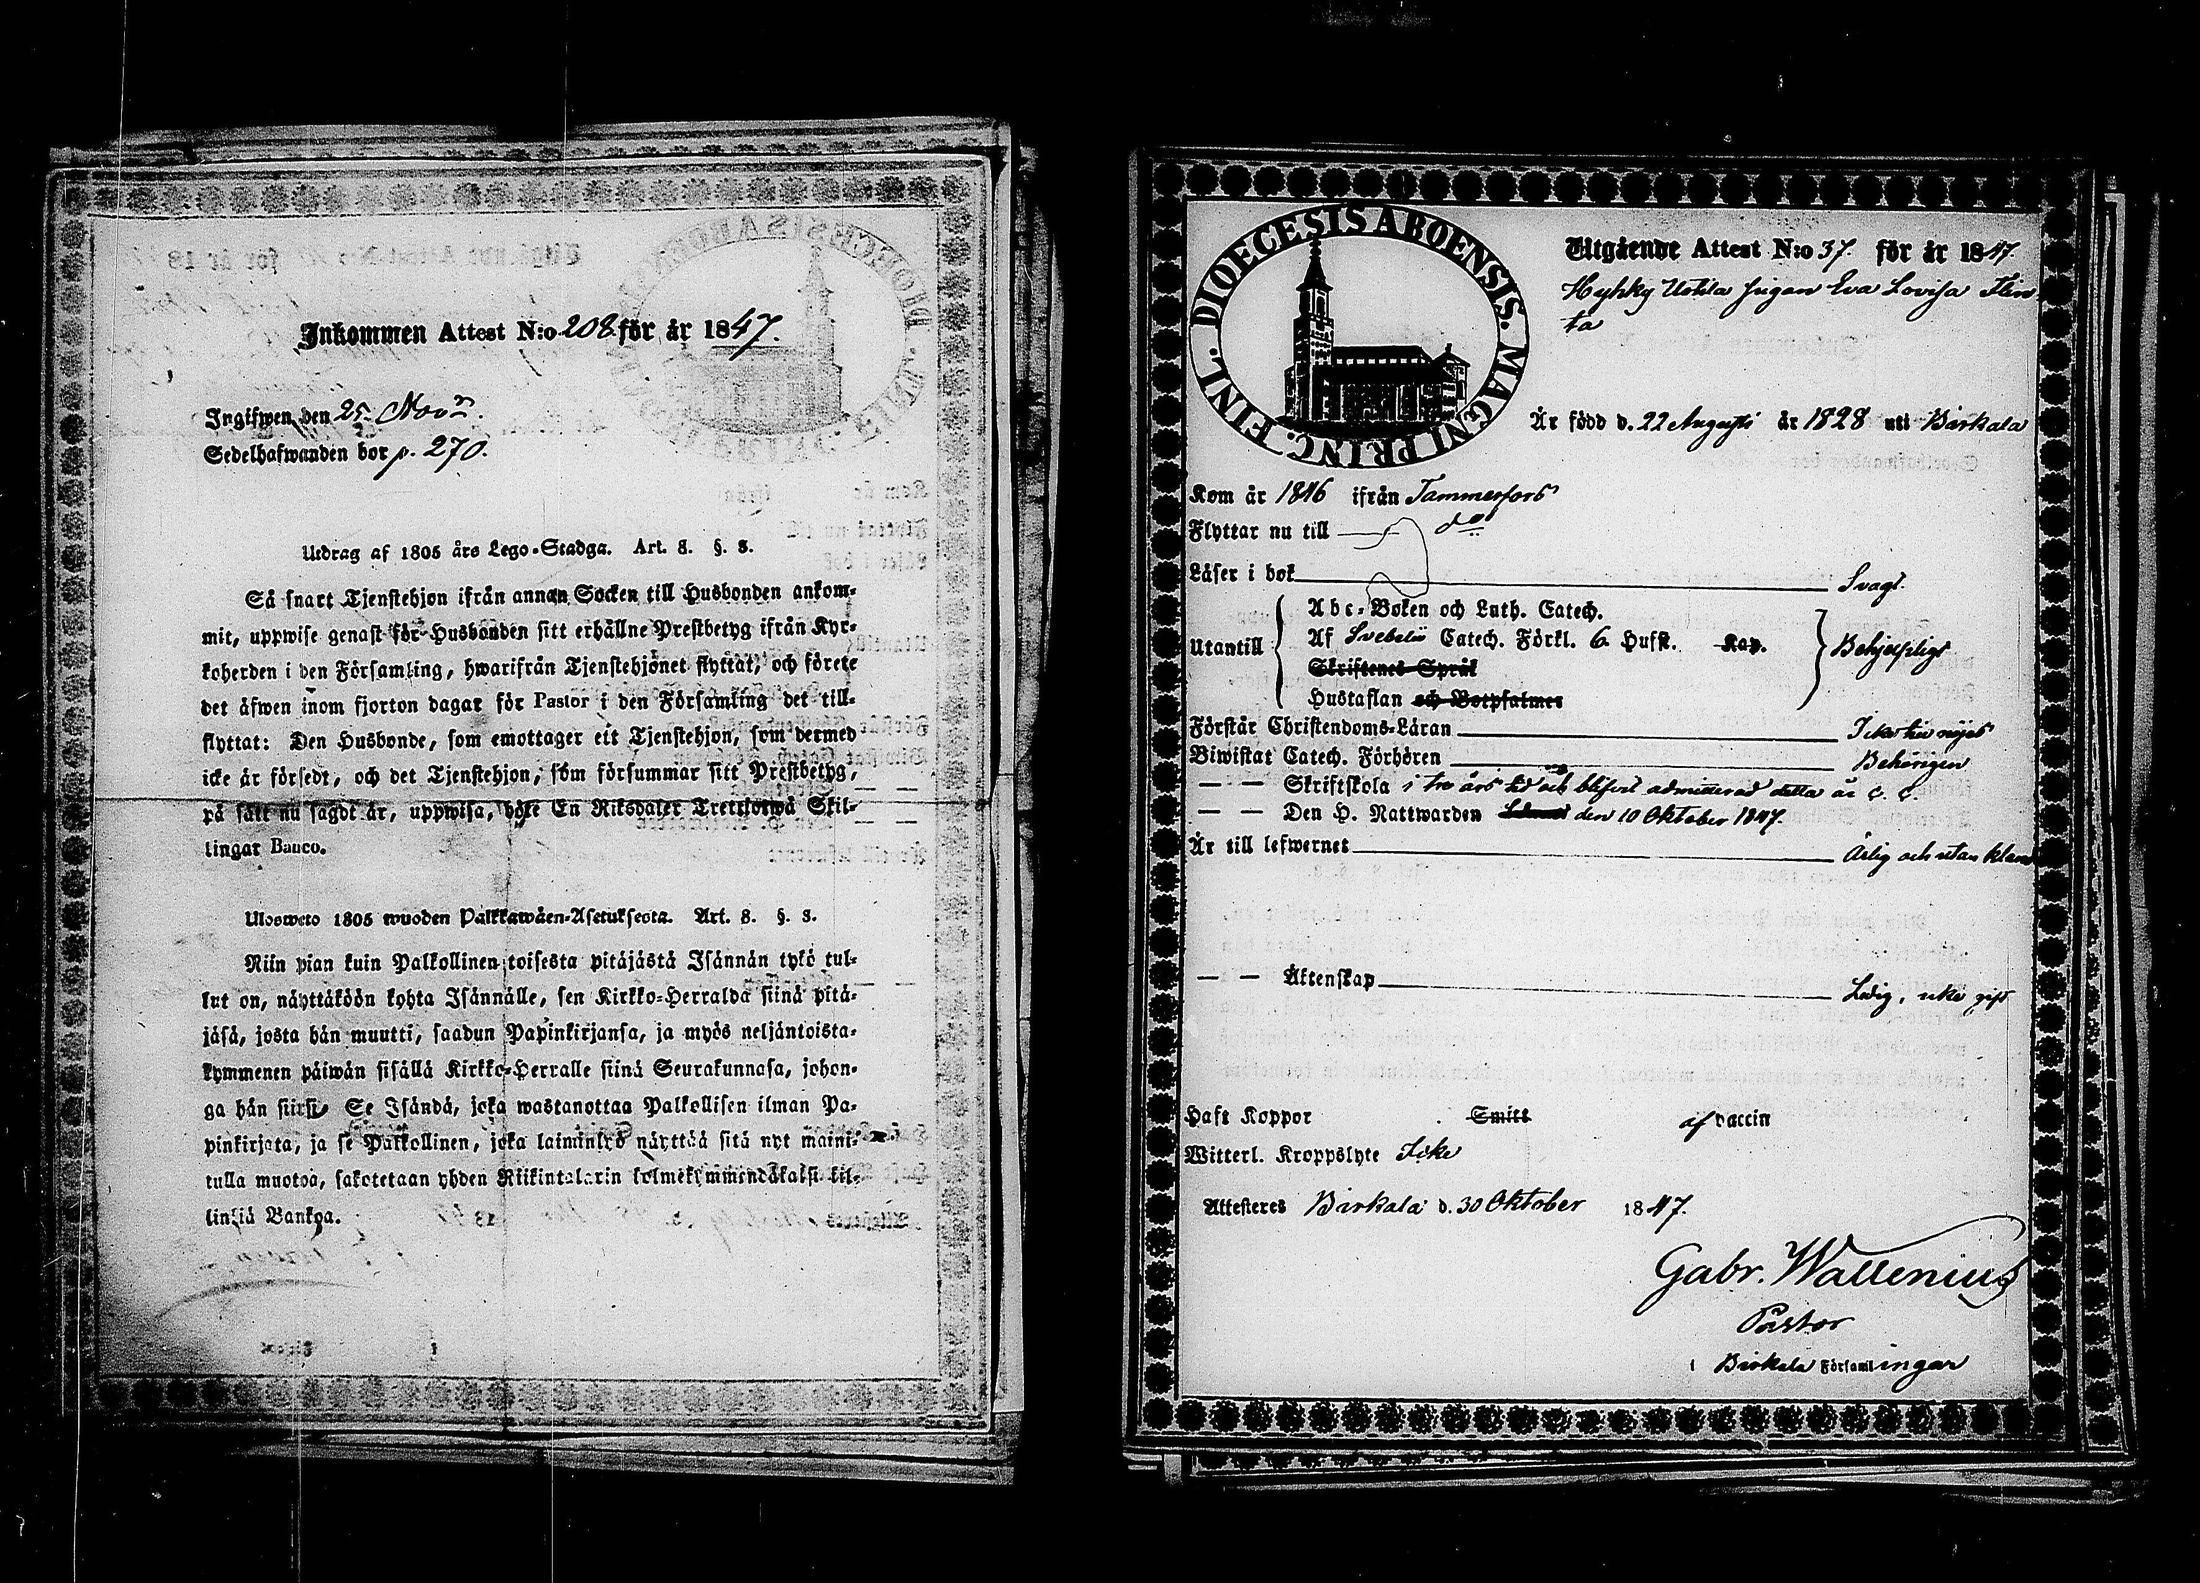 Inkommen Attest N:o 208 för år 1847.
Ingifwen den 25 Novr.
Sedelhafwanden bor p. 270.
Utdrag af 1805 års Lego-Stadga. Art. 8. §. 3.
Så snart Tjenstehjon ifrån annan Socken till Husbonden ankom-
mit, uppwise genast för Husbonden sitt erhållne Prestbetyg ifrån Kyr-
koherden i den Församling, hwarifrån Tjenstehjonet flyttat, och förete
det äfwen inom fjorton dagar för Pastor i den Församling det till-
flyttat: Den Husbonde, som emottager ett Tjenstehjon, som dermed
icke är försedt, och det Tjenstehjon, som försummar sitt Prestbetyg,
på sätt nu sagdt är, uppwisa, böte En Riksdaler Trettiotwå Skil-
lingar Banco.
Uloswето 1805 wuoden Palkkawäen-Asetuksesta. Art. 8. §. 3.
Niin pian kuin Palkollinen toisesta pitäjästä Isännän tykö tul-
lut on, näyttäköön kohta Isännälle, sen Kirkko-Herralda siinä pitä-
jäsä, josta hän muutti, saadun Papinkirjansa, ja myös neljäntoista-
kymmenen päiwän sisällä Kirkko-Herralle siinä Seurakunnasa, johon-
ga hän siirsi. Se Isändä, joka wastanottaa Palkollisen ilman Pa-
pinkirjata, ja se Palkollinen, joka laiminlyö näyttää sitä nyt maini-
tulla muotoa, sakotetaan yhden Riikintalarin kolmekymmendäkaksi kil-
lingiä Bankoa.
DIOECESIS ABOENSIS. MAGNI PRINC. FINL.
Utgående Attest N:o 37. för år 1847.
Hyhky Uotila Pigan Eva Lovisa Flin
ta
Är född d. 22 Augusti år 1828 uti Birkala
Kom år 1846 ifrån Tammerfors
Flyttar nu till do
Läser i bok Svagt
Utantill
Abc-Boken och Luth. Catech.
Af Svebelii Catech. Förkl. 6 Hufst. Kap. Behjelpligt
Skriftenes Språk
Hustaflan och Botpsalmer
Förstår Christendoms-Läran
Biwistat Catech. Förhören Behörigen
— — Skriftskola i tre års tid och blifvit admitterad detta år
— — Den H. Nattwarden den 10 Oktober 1847.
Är till lefwernet Ärlig och utan klan
— — Äktenskap Ledig, icke gift
Haft Koppor Smitt af vaccin
Witterl. Kroppslyte Icke
Attesteres Birkala d. 30 Oktober 1847.
Gabr. Wallenius
Pastor
i Birkala Församlingar